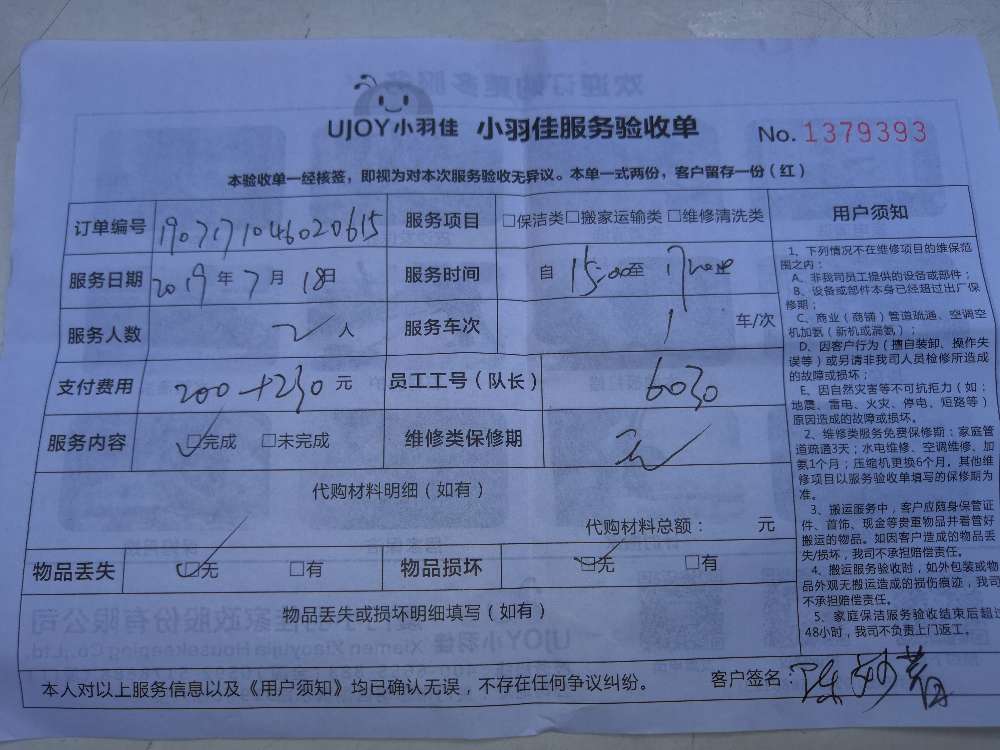 UJOY小羽佳 小羽佳服务验收单 No. 1379393
本验收单一经核签，即视为对本次服务验收无异议。本单一式两份，客户留存一份（红）
订单编号 1907171046020615 服务项目 □保洁类□搬家运输类□维修清洗类
服务日期 2019年7月18日 服务时间 自 15:00至 17:00止
服务人数 2人 服务车次 1 车/次
支付费用 200+230元 员工工号（队长） 6030
服务内容 ☑完成 □未完成 维修类保修期 无
代购材料明细（如有）
代购材料总额： 元
物品丢失 ☑无 □有 物品损坏 ☑无 □有
物品丢失或损坏明细填写（如有）
本人对以上服务信息以及《用户须知》均已确认无误，不存在任何争议纠纷。 客户签名：陈
用户须知
1、下列情况不在维修项目的维保范
围之内：
A、非我司员工提供的设备或部件；
B、设备或部件本身已经超过出厂保
修期；
C、商业（商铺）管道疏通、空调空
机加氨（新机或漏氨）；
D、因客户行为（擅自装卸、操作失
误等）或另请非我司人员检修所造成
的故障或损坏；
E、因自然灾害等不可抗拒力（如：
地震、雷电、火灾、停电、短路等）
原因造成的故障或损坏。
2、维修类服务免费保修期：家庭管
道疏通3天；水电维修、空调维修、加
氨1个月；压缩机更换6个月。其他维
修项目以服务验收单填写的保修期为
准。
3、搬运服务中，客户应随身保管证
件、首饰、现金等贵重物品并看管好
搬运的物品。如因客户造成的物品丢
失/损坏，我司不承担赔偿责任。
4、搬运服务验收时，如外包装或物
品外观无搬运造成的损伤痕迹，我司
不承担赔偿责任。
5、家庭保洁服务验收结束后超过
48小时，我司不负责上门返工。